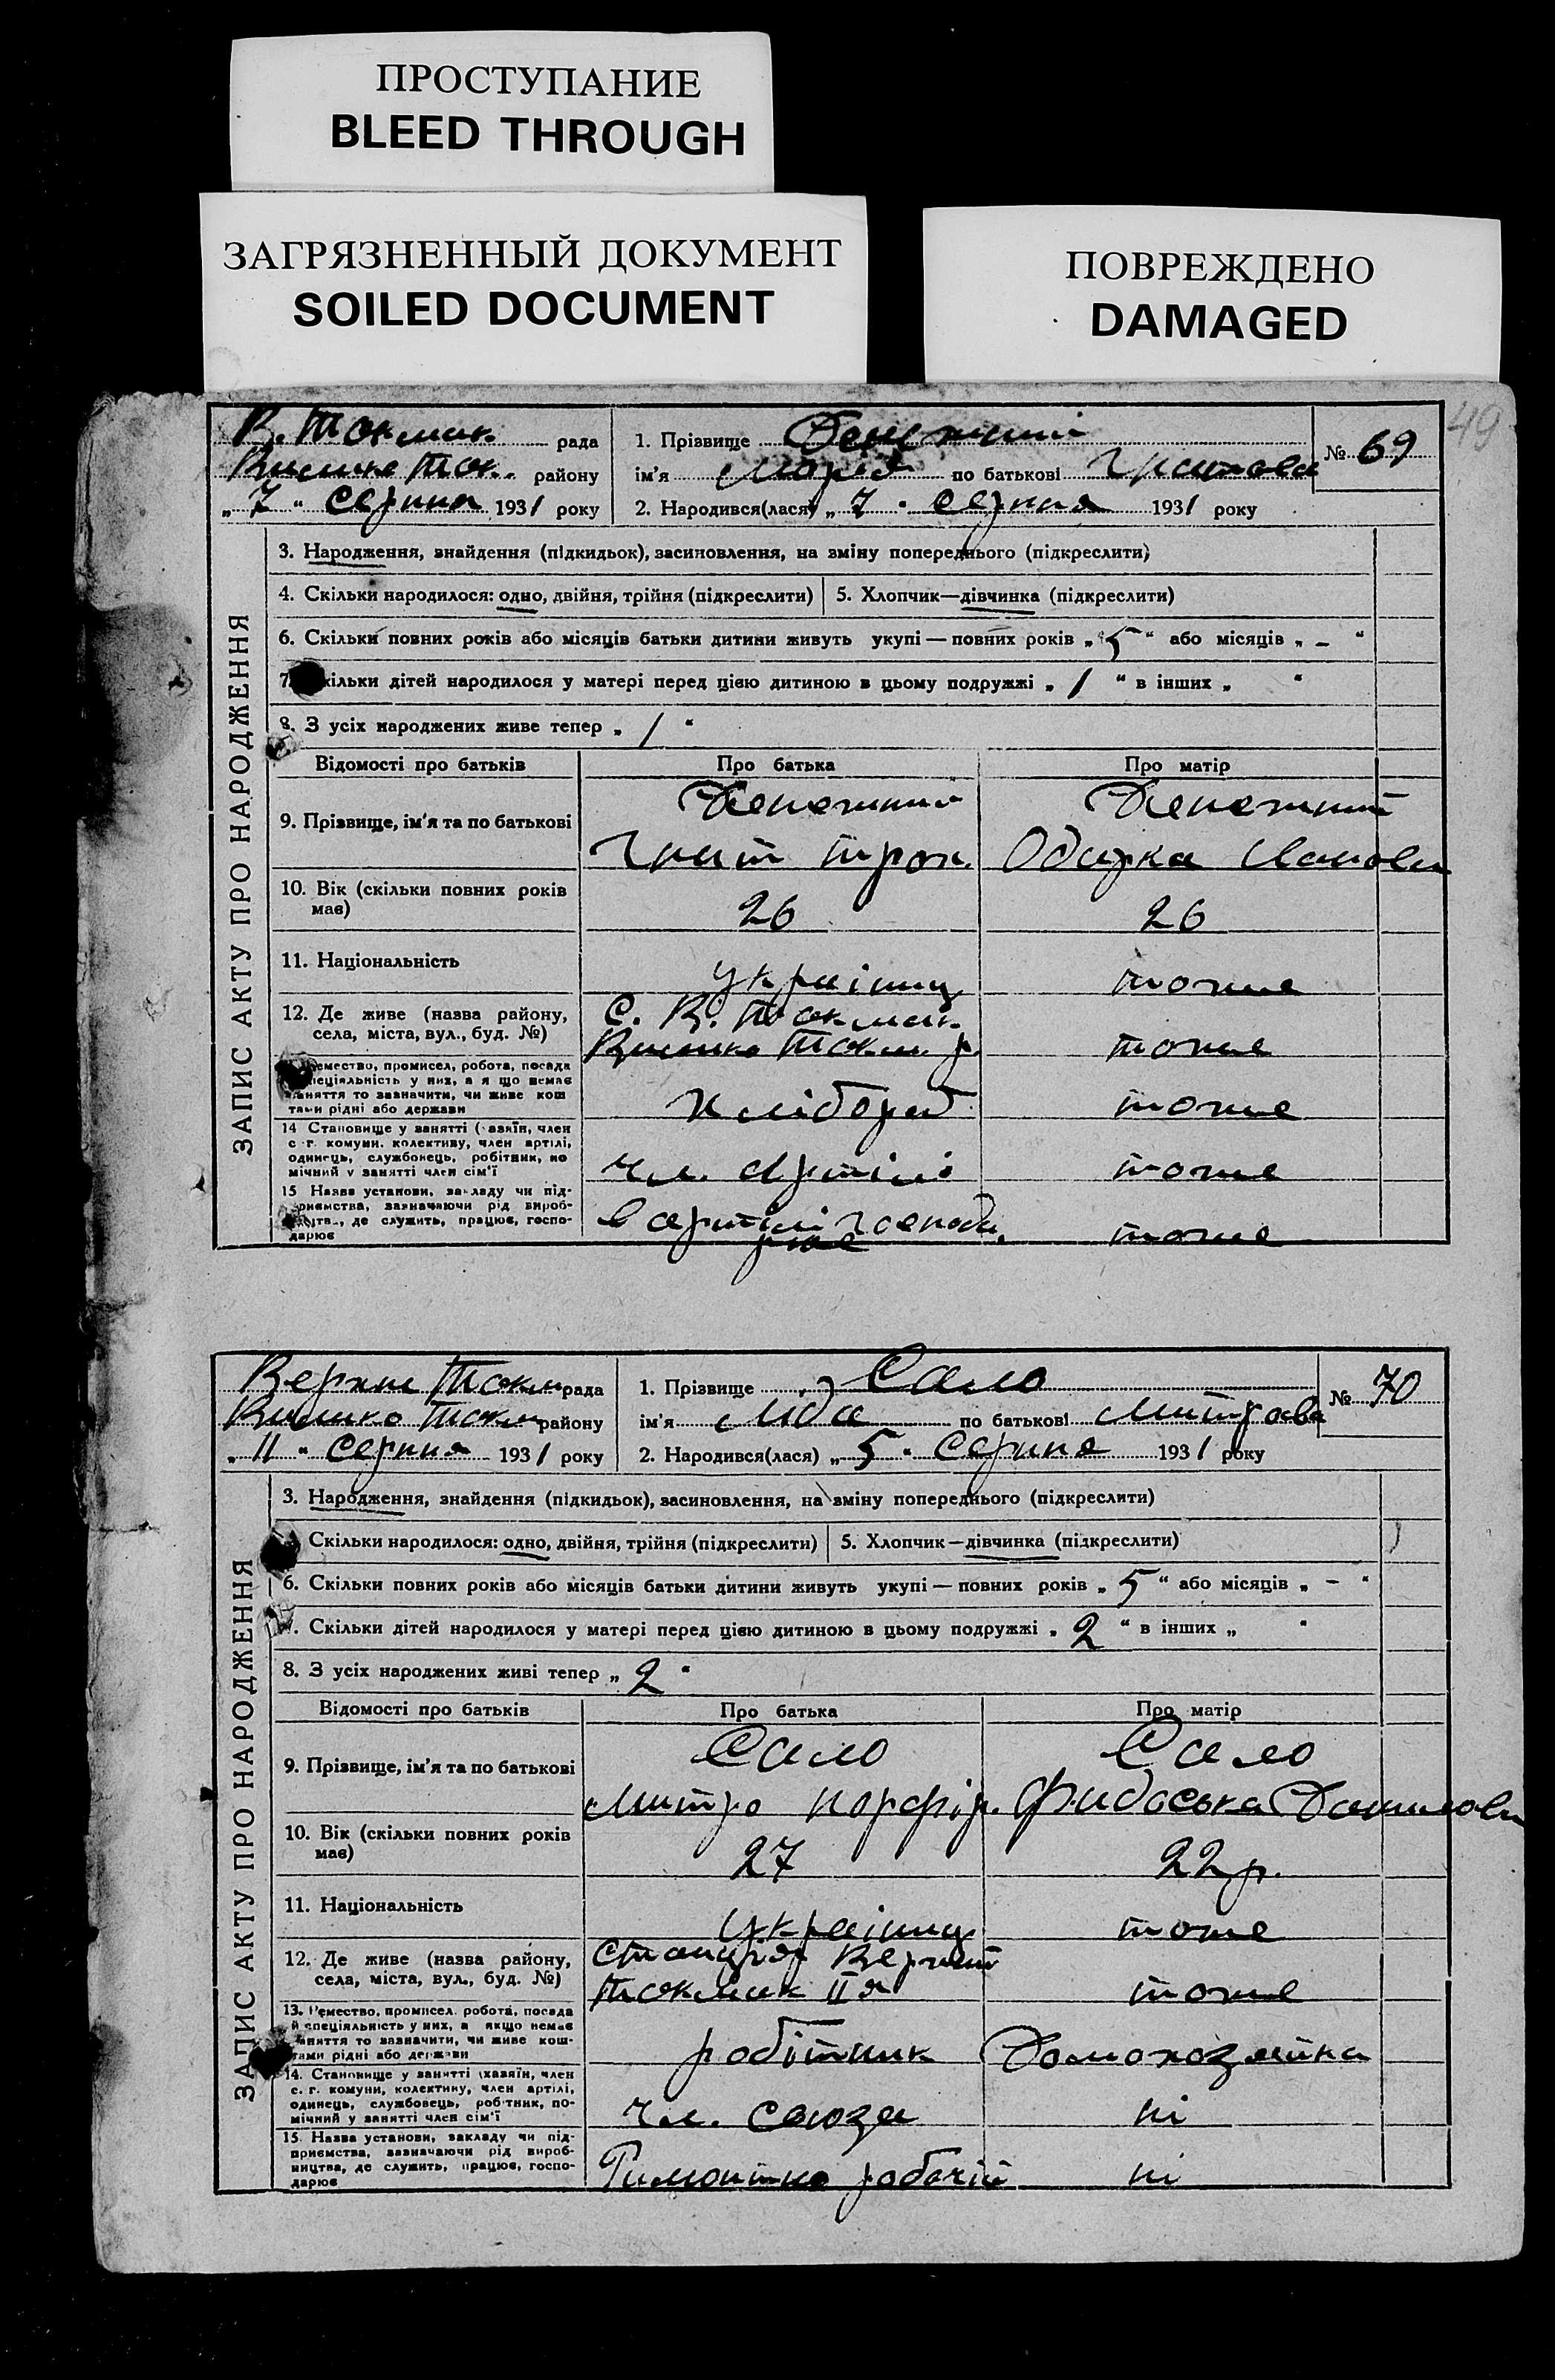 ПРОСТУПАНИЕ
BLEED THROUGH
ЗАГРЯЗНЕННЫЙ ДОКУМЕНТ
SOILED DOCUMENT
ПОВРЕЖДЕНО
DAMAGED
49
В. Токмак рада
Велико Ток. району
„ 7 " Серпня 1931 року
1. Прізвище
ім'я Марія по батькові Гнатова
№ 69
2. Народився(лася) „ 7 " серпня 1931 року
ЗАПИС АКТУ ПРО НАРОДЖЕННЯ
3. Народження, знайдення (підкидьок), засиновлення, на зміну попереднього (підкреслити)
4. Скільки народилося: одно, двійня, трійня (підкреслити) 5. Хлопчик—дівчинка (підкреслити)
6. Скільки повних років або місяців батьки дитини живуть укупі — повних років „ 5 " або місяців „ – "
7. Скільки дітей народилося у матері перед цією дитиною в цьому подружжі „ 1 " в інших „ "
8. З усіх народжених живе тепер „ 1 "
Відомості про батьків Про батька Про матір
9. Прізвище, ім'я та по батькові
Гнат Троп. Одарка
10. Вік (скільки повних років має) 26 26
11. Національність українец тоже
12. Де живе (назва району, села, міста, вул., буд. №)
С. В. Токмак
Велико Токм. р. тоже
13. Ремество, промисел, робота, посада й спеціяльність у них, а якщо немає заняття то зазначити, чи живе коштами рідні або держави
хлібороб тоже
14 Становище у занятті (хазяїн, член с.-г. комуни, колективу, член артілі, одинець, службовець, робітник, помічний у занятті член сім'ї
чл. Артілі тоже
15 Назва установи, закладу чи підприємства, зазначаючи рід виробництва, де служить, працює, господарює
в артілі господа
рює тоже
Верхне Токм рада
Велико Токм району
„ 11 " серпня 1931 року
1. Прізвище Сало
ім'я Ліда по батькові Митрова
№ 70
2. Народився(лася) „ 5 " Серпня 1931 року
ЗАПИС АКТУ ПРО НАРОДЖЕННЯ
3. Народження, знайдення (підкидьок), засиновлення, на зміну попереднього (підкреслити)
Скільки народилося: одно, двійня, трійня (підкреслити) 5. Хлопчик—дівчинка (підкреслити)
6. Скільки повних років або місяців батьки дитини живуть укупі — повних років „ 5 " або місяців „ – "
7. Скільки дітей народилося у матері перед цією дитиною в цьому подружжі „ 2 " в інших „ "
8. З усіх народжених живі тепер „ 2 "
Відомості про батьків Про батька Про матір
9. Прізвище, ім'я та по батькові
Сало Сало
Митро Порфір. Федоська Данилови
10. Вік (скільки повних років має) 27 22 р.
11. Національність українец тоже
12. Де живе (назва району, села, міста, вул., буд. №)
Станція Верхній
Токмак II я тоже
13. Ремество, промисел, робота, посада й спеціяльність у них, а якщо немає заняття то зазначити, чи живе коштами рідні або держави
робітник Домохозяйка
14. Становище у занятті (хазяїн, член с. г. комуни, колективу, член артілі, одинець, службовець, робітник, помічний у занятті член сім'ї
чл. союза ні
15. Назва установи, закладу чи підприємства, зазначаючи рід виробництва, де служить, працює, господарює
робочій ні